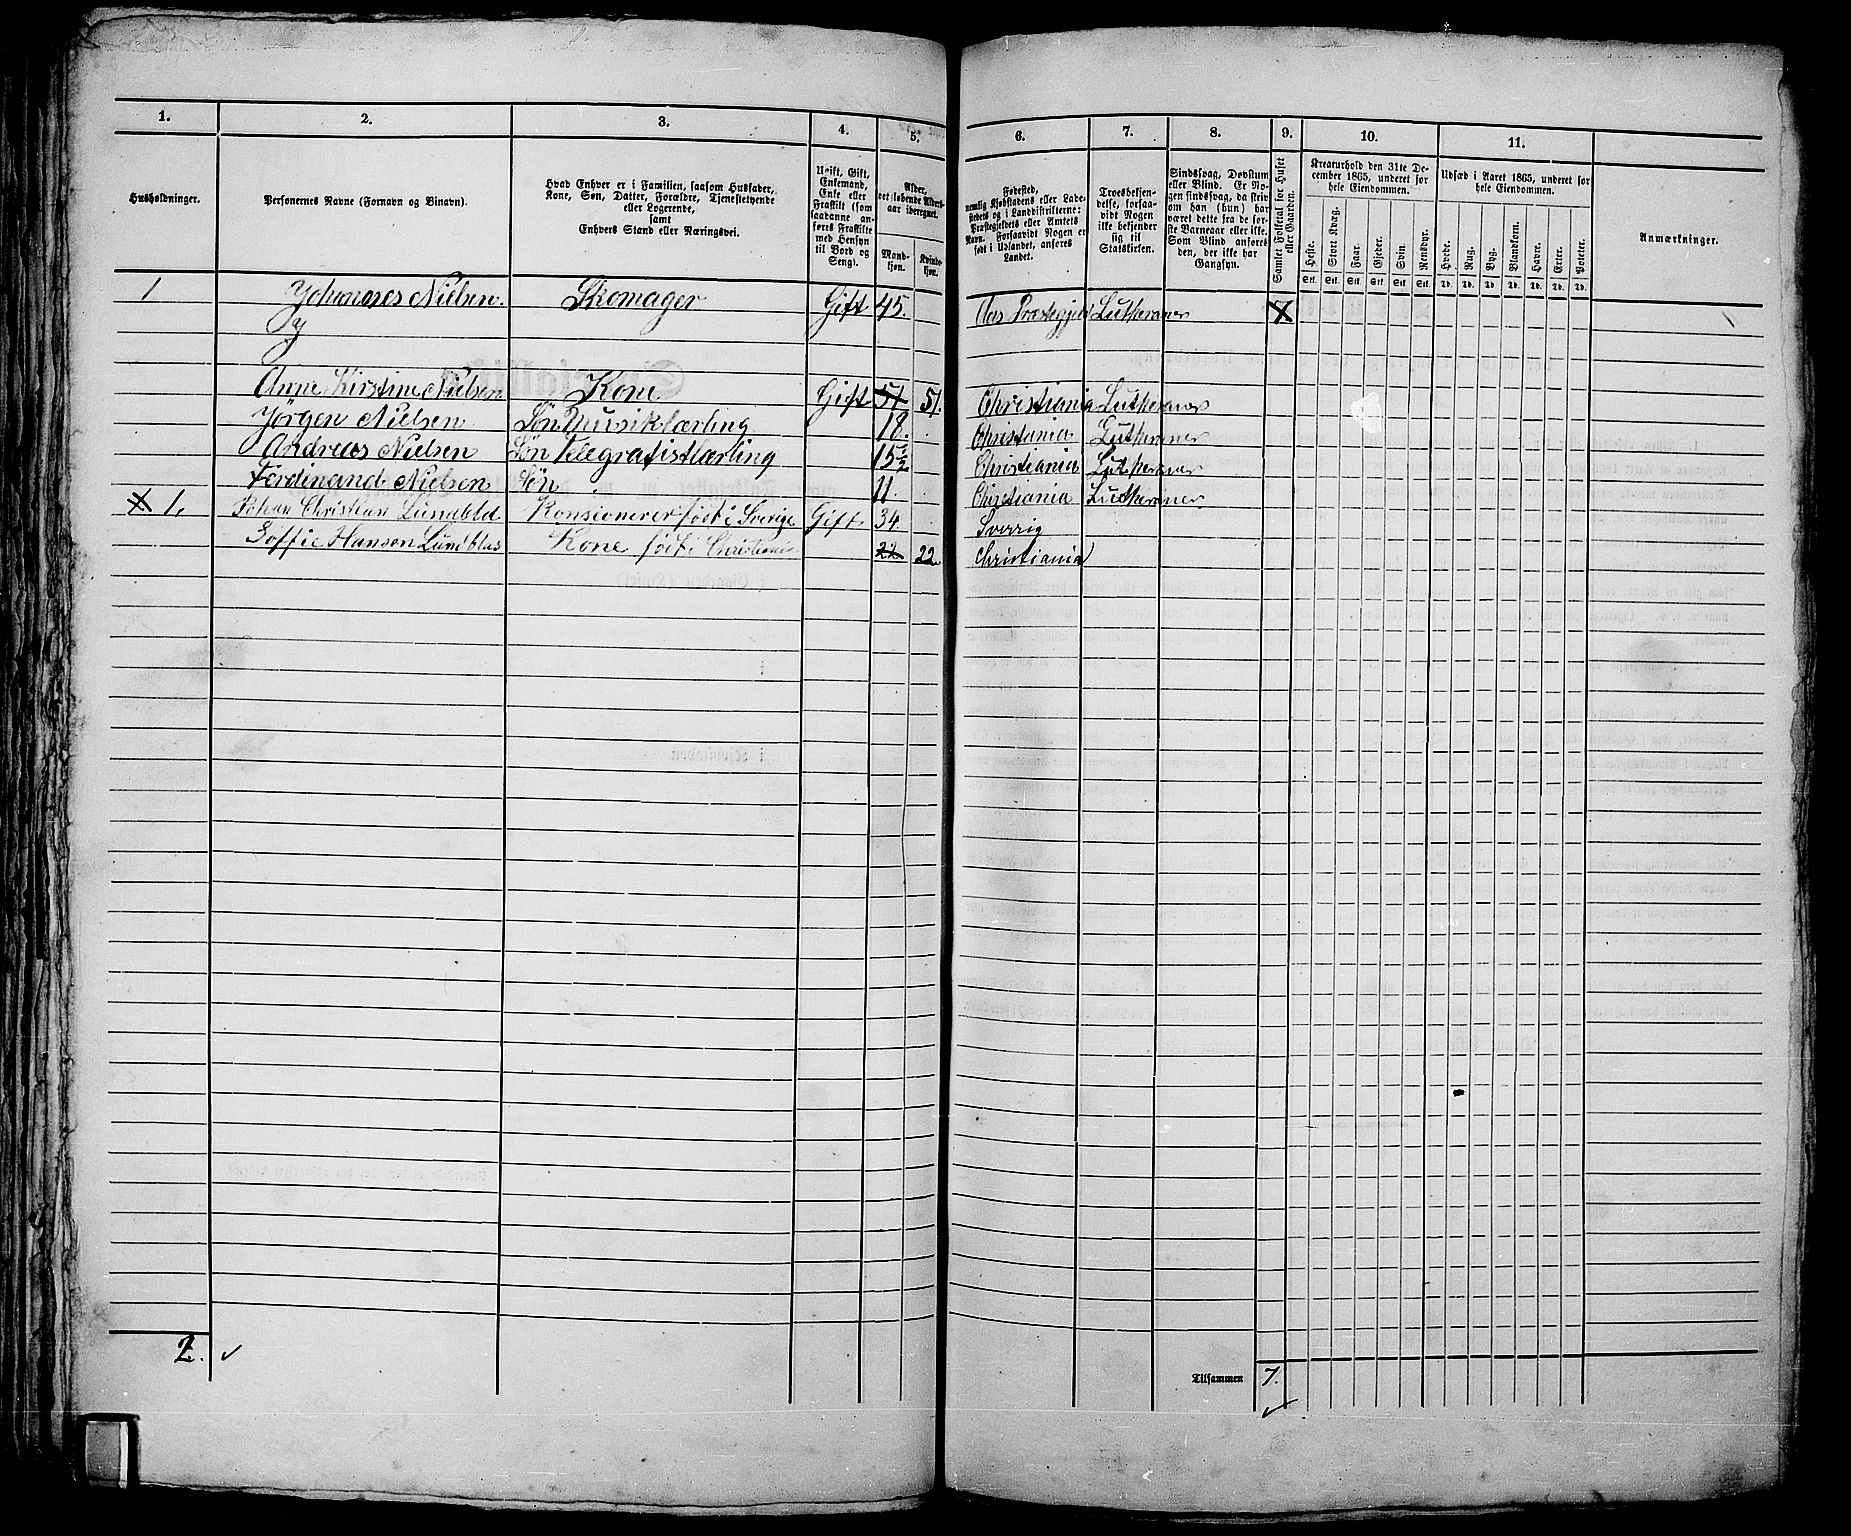 1. 2. 3. 4. 5. 6. 7. 8. 9. 10. 11.
Husholdninger.
Personernes Navne (Fornavn og Binavn).
Hvad Enhver er i Familien, saasom Husfader,
Kone, Søn, Datter, Forældre, Tjenestetyende
eller Logerende,
samt
Enhvers Stand eller Næringsvei.
Ugift, Gift,
Enkemand,
Enke eller
Fraskilt (som
saadanne an-
føres Fraskilte
med Hensyn
til Bord og
Seng).
Alder,
det løbende Alders-
aar iberegnet.
Mand-
kjøn.
Kvinde-
kjøn.
Fødested,
nemlig Kjøbstadens eller Lade-
stedets og i Landdistrikterne:
Præstegjeldets eller Amtets
Navn. Forsaavidt Nogen er
født i Udlandet, anføres
Landet.
Troesbekjen-
delse, forsaa-
vidt Nogen
ikke bekjender
sig til
Statskirken.
Sindssvag, Døvstum
eller Blind. Er No-
gen sindssvag, da skriv
om han (hun) har
været dette fra de før-
ste Barneaar eller ikke.
Som Blind anføres
den, der ikke har
Gangsyn.
Samlet Folketal for Huset
eller Gaarden.
Kreaturhold den 31te De-
cember 1865, underet for
hele Eiendommen.
Heste. Stort Kvæg. Faar. Gjeder. Svin. Rensdyr.
Stk. Stk. Stk. Stk. Stk. Stk.
Udsæd i Aaret 1865, underet for
hele Eiendommen.
Hvede. Rug. Byg. Blandkorn. Havre. Erter. Poteter.
Td. Td. Td. Td. Td. Td. Td.
Anmærkninger.
1 Johannes Nielsen. Skomager Gift 45. Aas Præstegjeld Lutheraner X
og
Anne Kirstine Nielsen Kone Gift 51 51. Christiania Lutheraner
Jörgen Nielsen Søn Musiklærling 18. Christiania Lutheraner
Andreas Nielsen Søn Telegrafistlærling 15½ Christiania Lutheraner
Ferdinand Nielsen Søn 11. Christiania Lutheraner
X 1. Johan Christian Lundblad Konsionerer født i Sverige Gift 34. Sverrig
Soffie Hansen Lundblad Kone født i Christiania 22 22. Christiania
2.
Tilsammen 7.